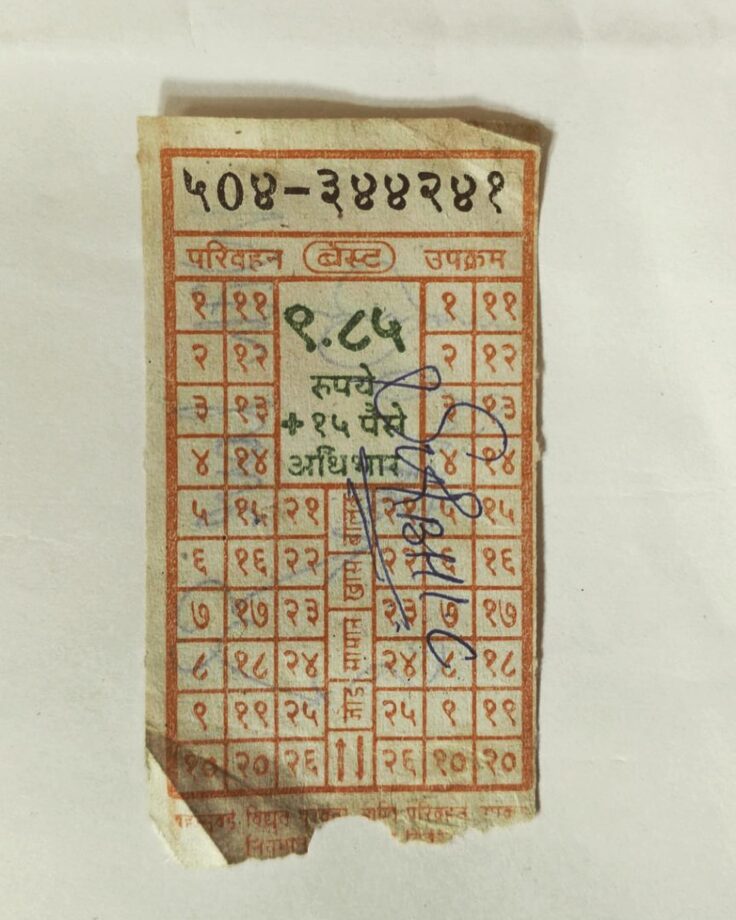 ५०४-३४४२४१
परिवहन बेस्ट उपक्रम
१ ११ ९.८५ १ ११
२ १२ रुपये २ १२
३ १३ +१५ पैसे ३ १३
४ १४ अधिभार ४ १४
५ १५ २१ २१ ५ १५
६ १६ २२ खास २२ ६ १६
७ १७ २३ सामान २३ ७ १७
८ १८ २४ २४ ८ १८
९ १९ २५ जोड २५ ९ १९
१० २० २६ ↑↓ २६ १० २०
विद्युत परिवहन